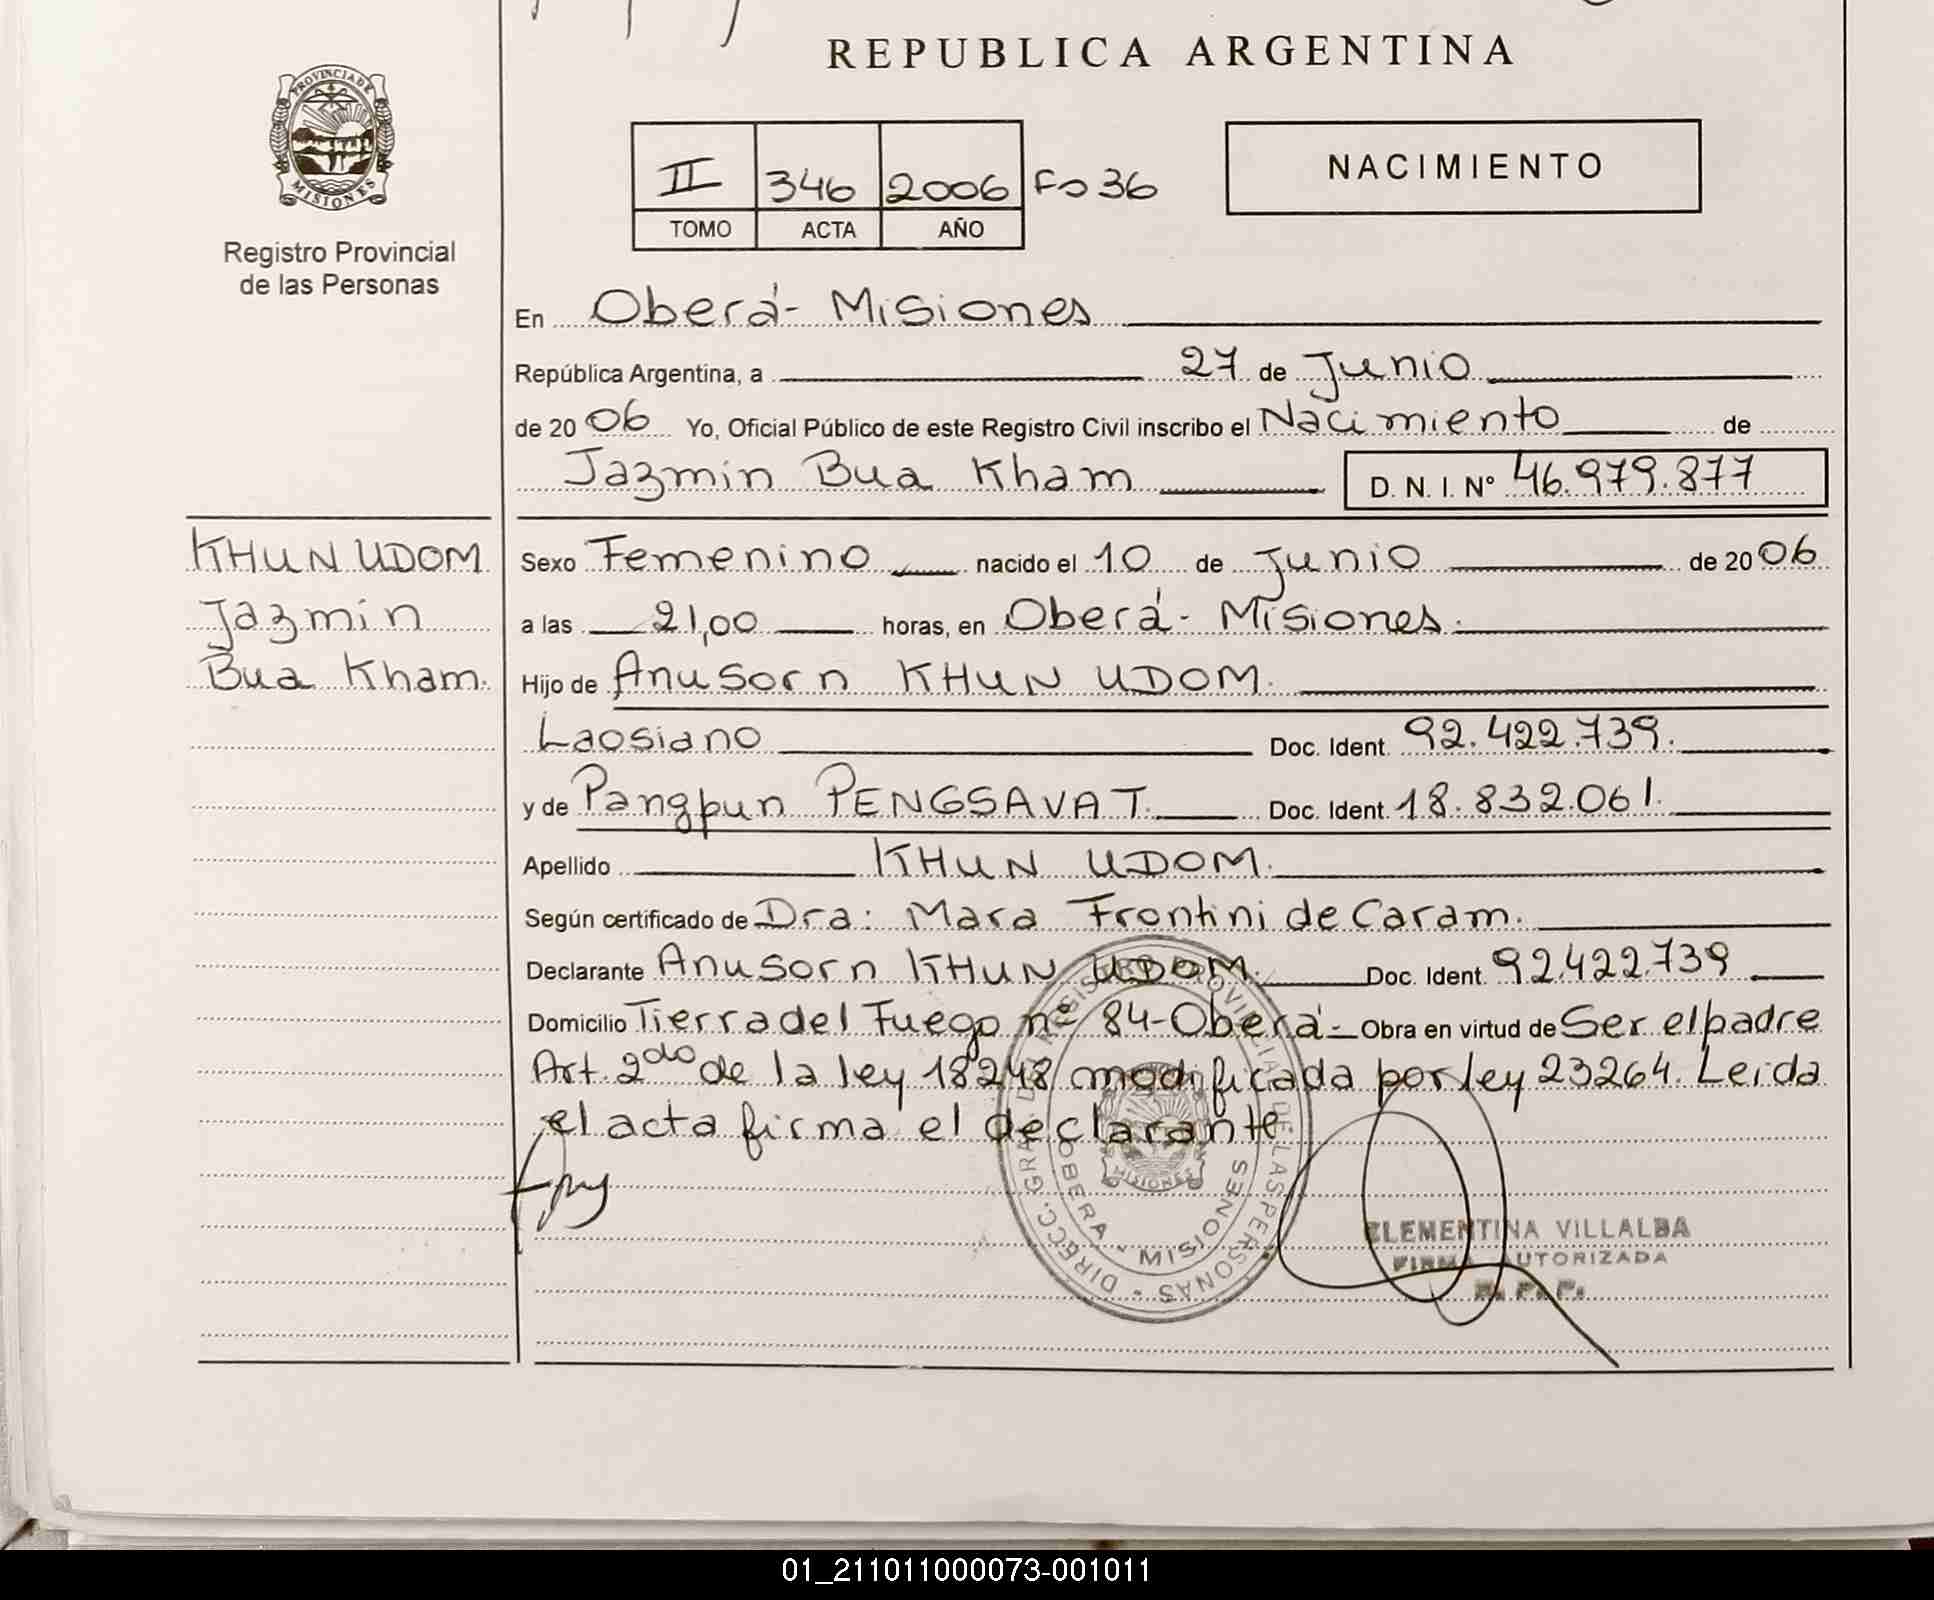 REPUBLICA ARGENTINA
PROVINCIA DE
MISIONES
Registro Provincial
de las Personas
II 346 2006 Fo 36
TOMO ACTA AÑO
NACIMIENTO
En Oberá - Misiones
República Argentina, a 27 de Junio
de 2006 Yo, Oficial Público de este Registro Civil inscribo el Nacimiento de
Jazmin Bua Kham D. N. I. N° 46.979.877
KHUN UDOM
Jazmin
Bua Kham.
Sexo Femenino nacido el 10 de Junio de 2006
a las 21,00 horas, en Oberá - Misiones.
Hijo de Anusorn KHUN UDOM.
Laosiano Doc. Ident. 92.422.739.
y de Pangpun PENGSAVAT. Doc. Ident. 18.832.061.
Apellido KHUN UDOM.
Según certificado de Dra: Mara Frontini de Caram.
Declarante Anusorn KHUN UDOM. Doc. Ident. 92.422.739
Domicilio Tierra del Fuego nº 84-Oberá- Obra en virtud de Ser el padre
Art. 2do de la ley 18248 modificada por ley 23264. Leida
el acta firma el declarante.
DIRECC. GRAL. DEL REGISTRO PROVINCIAL DE LAS PERSONAS
OBERA - MISIONES
MISIONES
CLEMENTINA VILLALBA
FIRMA AUTORIZADA
R. P. P.
01_211011000073-001011